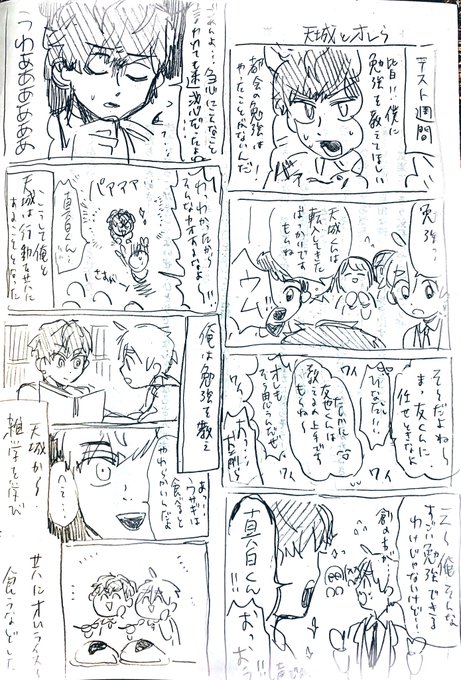 天城とオレら
テスト週間
皆!!僕に
勉強を教えてほしい
都会の勉強は
やったことがないんだ!
勉強…
天城くんは
転入してきた
ばっかりです
もんね
そ〜だよね〜
まァ友くんに
任せときなよ
ひなた!!
たしかに
友也くんは
教えるの上手です
もんね〜
オレも
そう思うんだぜ
ワイ
ワイ
ワイ
え〜そんな
すごい勉強できる
わけじゃないけど…
創のが
真白くん!!!
おっ
おう
急にこんなこと
うわああああああ
わ、わかったから
パアアア
真白くん
こうして俺と
天城は行動を共に
することとなった
俺は勉強を教え
天城から
雑学を学び
あ…
うさぎは
食べると
やわらかいんだよ
へぇ…
共にオムライスを
食うなどした